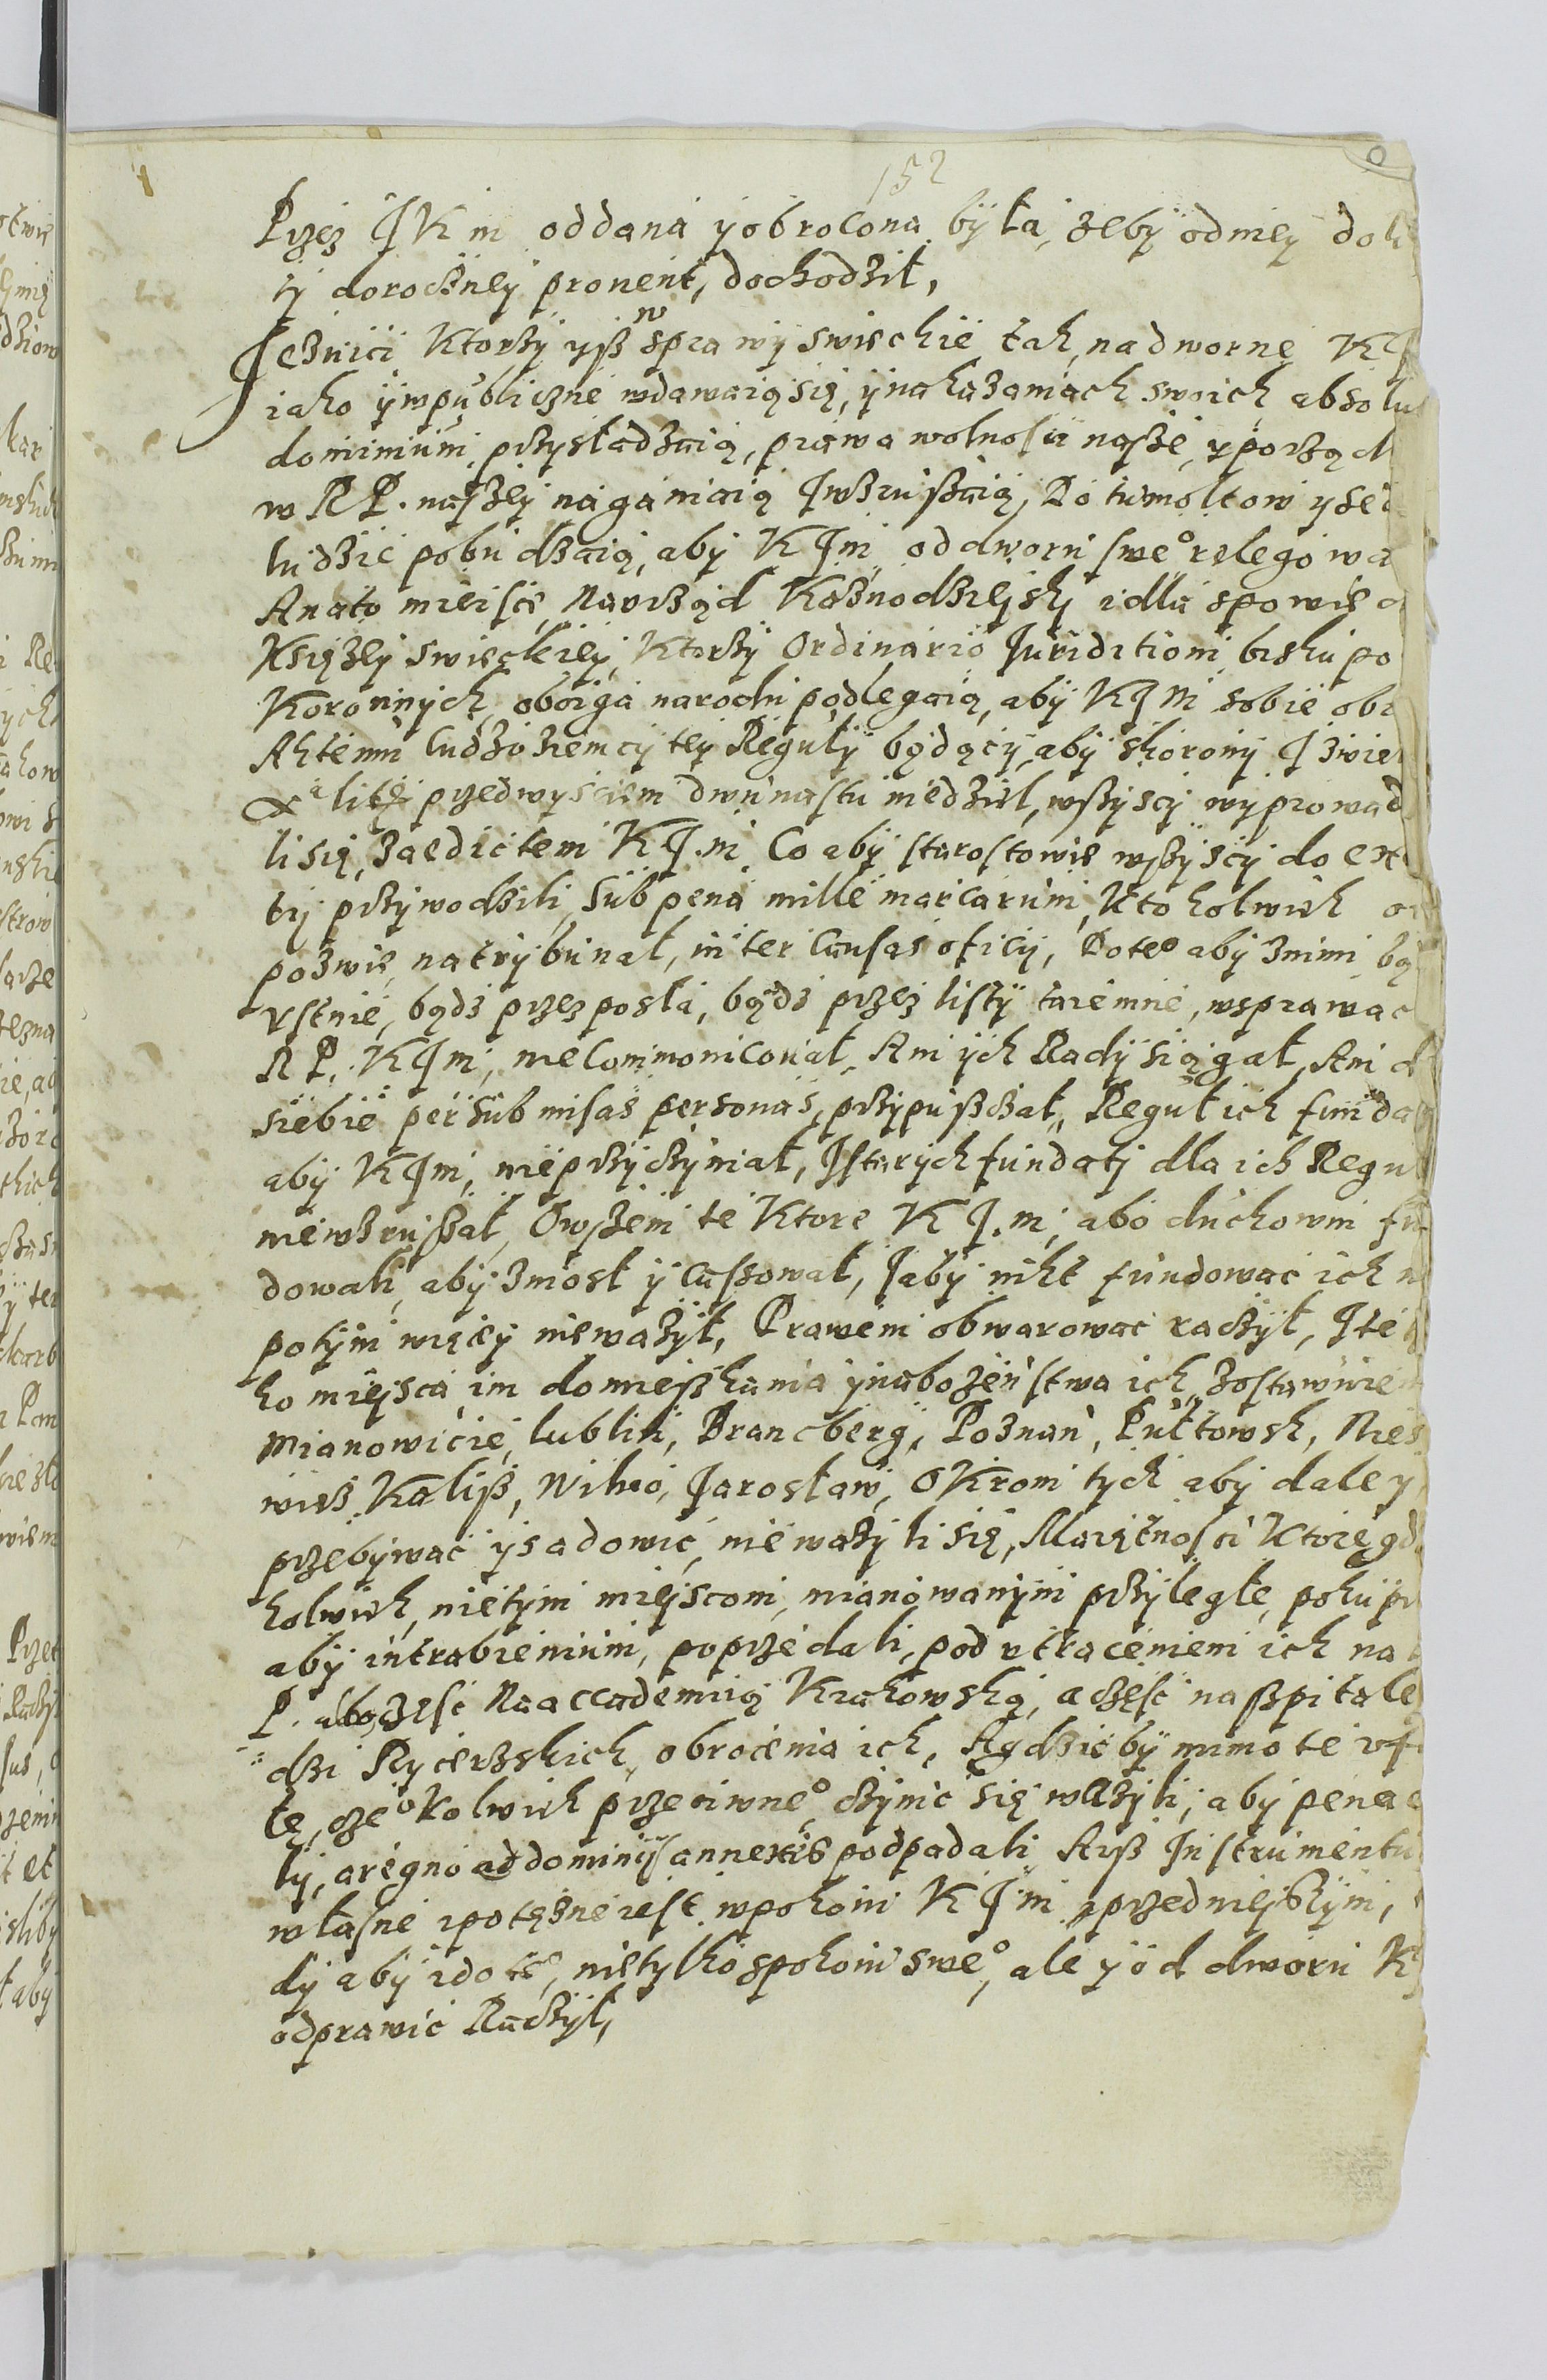 152
Przez JKm oddana y obrocona była, zeby odniey do
ty doroczney pronent, dochodził,
Jezuici Ktorzy yß w sprawy swieckie tak, nadworne KJ
iako ywpubliczne wdawaią się, ynakazaniach swoich absolu
dominium, przysładzaią, prawa wolnosci nasze, yporząd
w RP. naszey naganiaią Jwzrußaią, Do tumoltow yse
ludzie pobudzaią, aby KJm od dworu sweo relegowa
Anato mieisce, Naurząd Kaznodzieiski idla spowie
Księzey swieckiey, Ktorzy Ordinario Juriditioni biskupo
Koronnych oboiga narodu podlegaią, aby KJM sobie obr
Aktemu cudzoziemcy tey Reguły będący, aby skorony J zwie
litey przedwysciem dwunastu niedziel, wßyscy wyprowad
li się, za edictem KJ.m Co aby starostowie wßyscy do exe
tij przywodzili, Sub pena mille marcarum, Ktokolwiek
pozwie, natrybunał, inter causas oficij, Doteo aby znimi bą
Vstnie, bądz przez posła, bądz przez listy taiemnie, wsprawac
RP. KJm, nie Commonicował, Ani ych Rady siągał, Ani d
siebie per submisas personas, przypußczał, Reguł ich funda
aby KJm, nieprzyczyniał, Jstarych fundaty dla ich Regu
niewzrußał, Owßem te Ktore KJ.m, abo duchowni fu
dowali, aby zniosł y cassował, Jaby nikt fundować ich
potym więcey nieważył, Prawem obwarować raczył, Jte
ko mieysca im domießkania ynabożeństwa ich, zostawuiem
Mianowicie, lublin, Brancberg, Poznań, Pułtowsk, Nies
wiez, Kaliß, Wilno, Jarosław, OKrom tych aby daley
przebywać ysadowić, nie ważyli się, Maiętności Ktore gd
kolwiek, nietym mieyscom, mianowanym przyległe, pokup
aby intrabienium, poprzedali, pod utraceniem ich na
P. abo część Na accademią Krakowską, aczęść naßpitale
dzi Rycerzskich, obrocenia ich, Agdzieby mimo te
tę, czeokolwiek przeciwneo czynić się ważyli, aby pena
ly, aregno ad dominijs annexis podpadali Ayß Jnstrumentu
własne ipotężne iest wpokoiu KJm przednieyßym,
dy aby idoteo, nietylko spokoiu sweo, ale y od dworu K
odprawić Raczył,